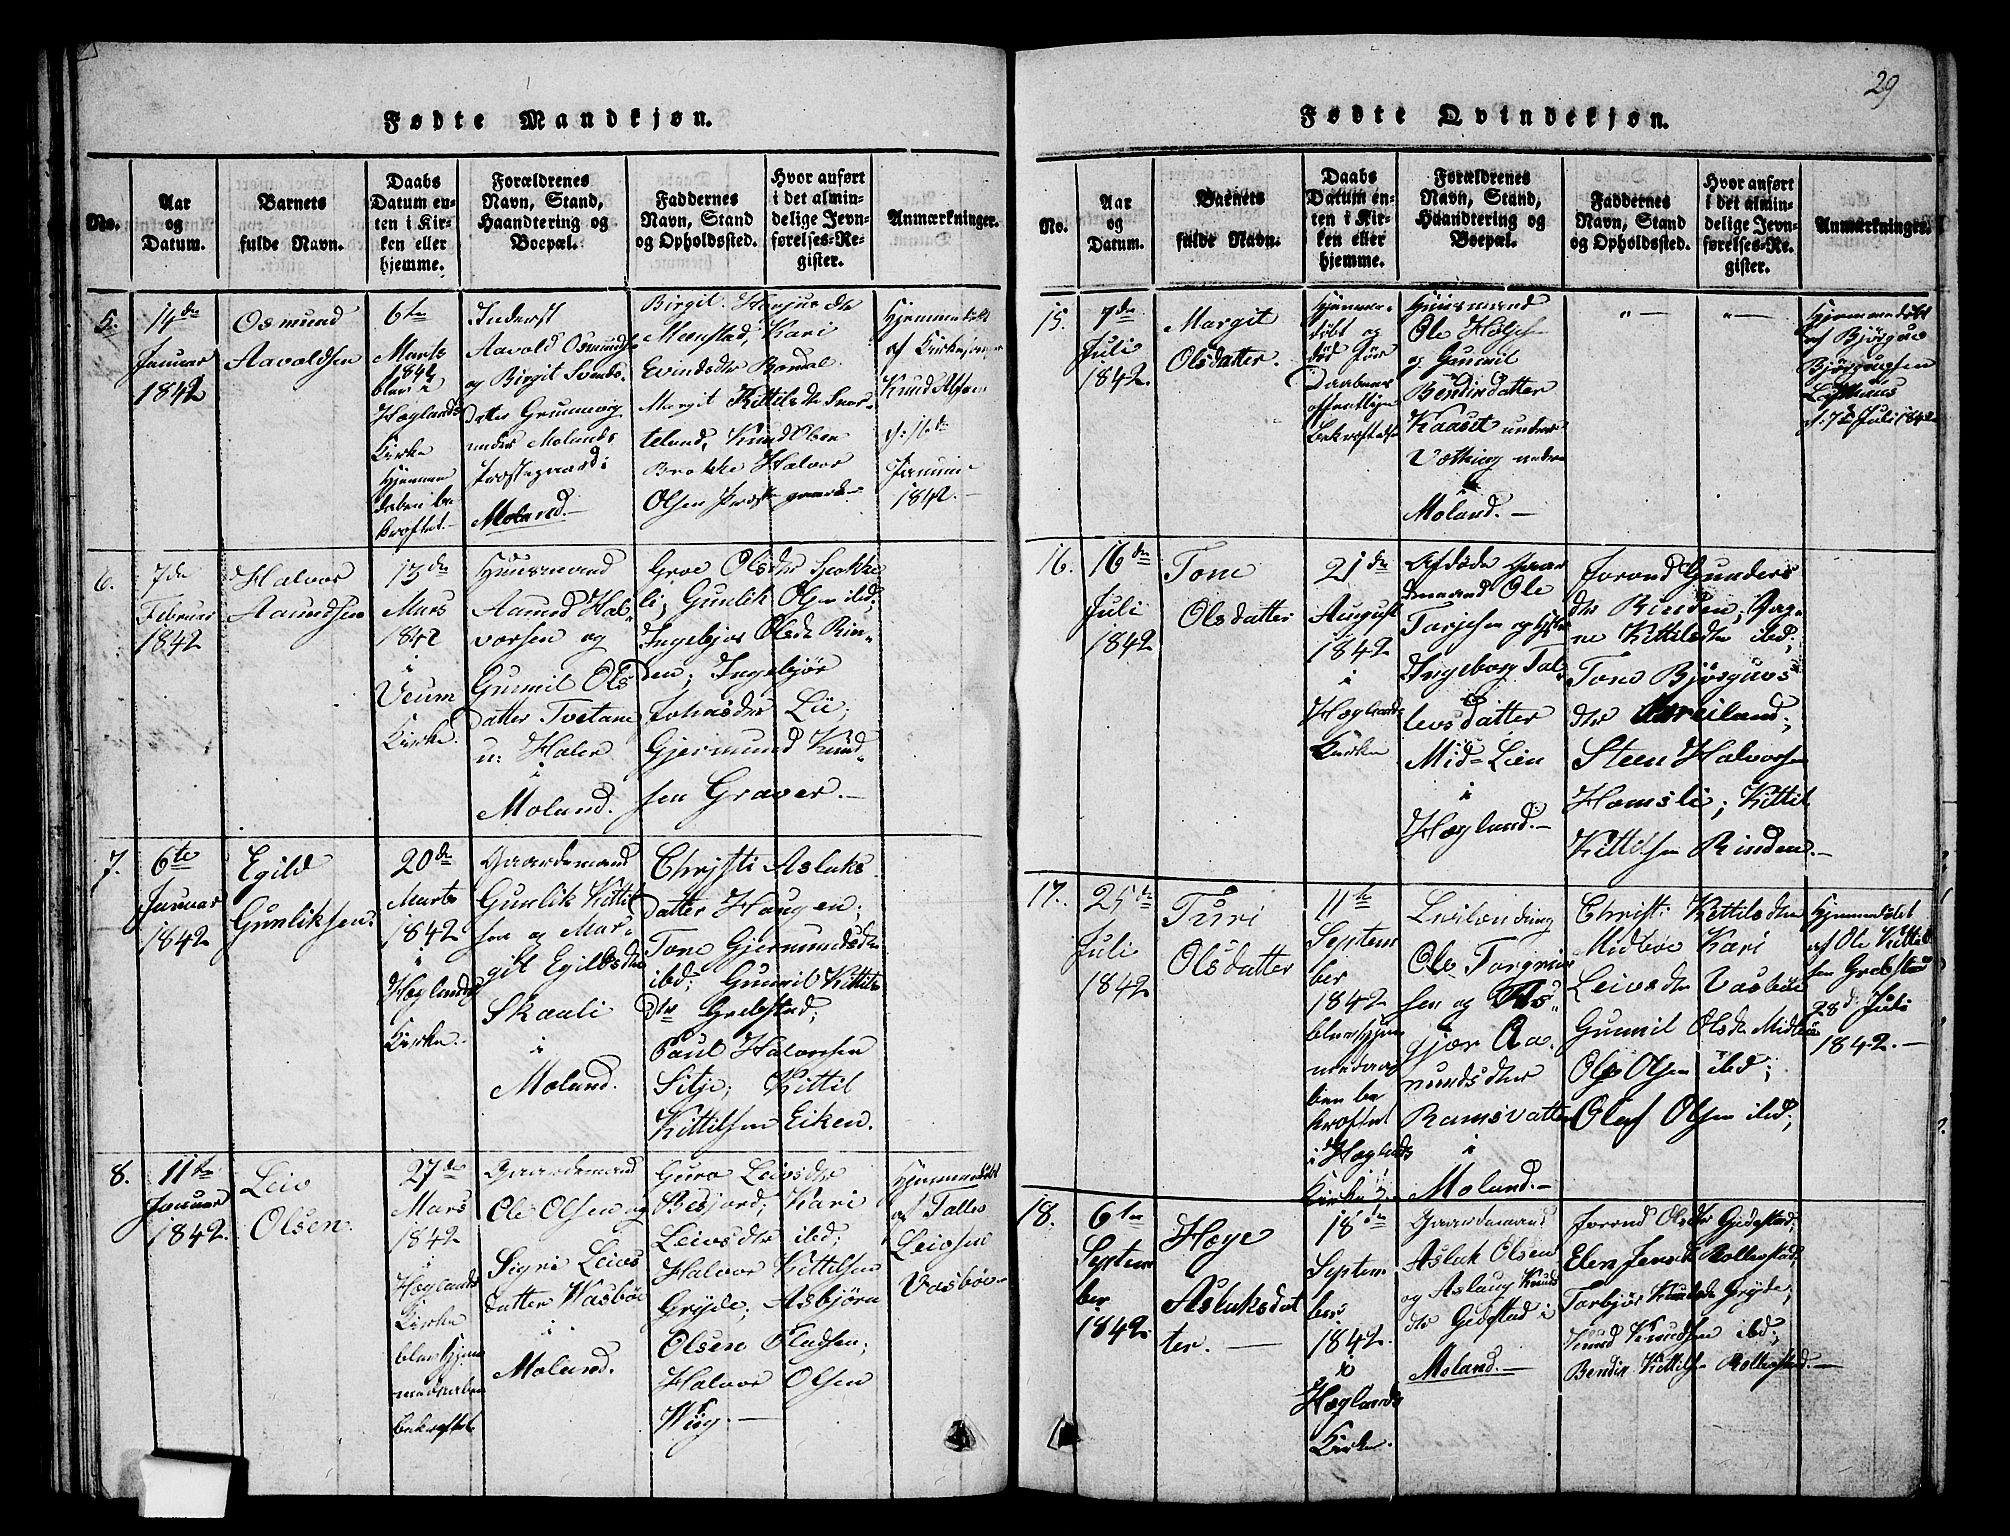 29
Fødte Mandkjøn.
No.
Aar
og
Datum.
Barnets
fulde Navn.
Daabs
Datum en-
ten i Kir-
ken eller
hjemme.
Forældrenes
Navn, Stand,
Haandtering og
Boepæl.
Faddernes
Navn, Stand
og Opholdssted.
Hvor anført
i det almin-
delige Jevn-
førelses-Re-
gister.
Anmærkninger.
5.
14de
Januar
1842
Osmund
Aavoldsen
6te
Marts
1842
blev i
Høglands
Kirke
Hjemme
daben be
kræftet
Inderst
Aavold Osmundsen
og Birgit Svends
datter
under Molands
Præstegaard i
Moland.
Birgit
Kari
Evindsdtr
Margit Kittilsdtr
Knud Olsen
Brokke Halvor
Olsen Præstegaard
Hjemmedøbt
af Kirkesanger
Knud
d: 16de
Januar
1842.
6.
7de
Februar
1842
Halvor
Aamundsen
13de
Mars
1842
i
Veum
Kirke.
Huusmand
Aamund Hal-
vorsen og
Gunnil Ols
datter Tvetane
u: Haler
i
Moland.
Groe Olsdtr
Gunlik Olsen ibd;
Ingebjør Olsdtr Rin-
den; Ingebjør
Johnsdtr Lie;
Gjermund Knud-
sen Graver.
7.
6te
Januar
1842
Egild
Gunliksen.
20de
Marts
1842
i
Høglands
Kirke.
Gaardemand
Gunlik Kittil
sen og Mar-
git Egildsdtr
Skaali
i
Moland.
Christi Asluks
datter Haugen;
Tone Gjermundsdtr
ibd; Gunnil Kittils
dtr Grebstad;
Paul Halvorsen
Sitje; Kittil
Kittilsen Eiken.
8.
11te
Januar
1842.
Leiv
Olsen.
27de
Mars
1842
i
Høglands
Kirke
blev Hjem
medaaben
bekræftet
Gaardemand
Ole Olsen og
Sigri Leivs
datter Vasbøe
i
Moland.
Guro Leivsdtr
Kari
Leivsdtr ibd;
Halvor Kittilsen
Gryde; Asbjørn
Olsen
Halvor Olsen
Hjemmedøbt
af Talles
Leivsen
Vasbøe
Fødte Qvindekjøn.
No.
Aar
og
Datum.
Barnets
fulde Navn.
Daabs
Datum en-
ten i Kir-
ken eller
hjemme.
Forældrenes
Navn, Stand,
Haandtering og
Boepæl.
Faddernes
Navn, Stand
og Opholdssted.
Hvor anført
i det almin-
delige Jevn-
førelses-Re-
gister.
Anmærkninger.
15.
7de
Juli
1842.
Margit
Olsdatter.
Hjemme-
døbt og
død før
Daabens
offentlige
bekræftelse
Huusmand
Ole
og Gunnil
Bendixdatter
Kaasit under
Vetting
i
Moland.
"
"
Hjemmedøbt
af Bjørguv
Bjørguvsen
Lofthuus
d: 7de Juli 1842
16.
16de
Juli
1842
Tone
Olsdatter
21de
August
1842
i
Høglands
Kirke
Afdøde Gaar
demand Ole
Tarjesen og
Ingeborg Tal-
levsdatter
Mid-Lien
i
Høgland.
Jorond Gunders
dtr Rinden;
Kittilsdtr ibd;
Tone Bjørguvs
dtr
Steen Halvorsen
Homsli; Kittil
Kittilsen Rinden.
17.
25de
Juli
1842
Turi
Olsdatter
11te
Septem
ber
1842
blev Hjem
medaa
ben be
kræftet
i Høglands
Kirke
Ole Torgrim
sen og As-
gjær Aa-
mundsdtr
Ramsvatten
i
Moland.
Christi Kittilsdtr
Midbøe Kari
Leivsdtr Vasbøe
Gunnil Olsdtr Midbøe
Ole Olsen ibd;
Oluf Olsen ibd;
Hjemmedøbt
af Ole Kittil
sen Grebstad
28de Juli
1842.
18.
6te
Septem
ber
1842.
Høge
Asluksdat
ter.
18de
Septem
ber
1842.
i
Høglands
Kirke.
Gaardemand
Asluk Olsen
og Aslaug Knuds
dtr Gidestad i
Moland.
Jorond Olsdtr Gidestad;
Elen Rollestad;
Torbjør Knudsdtr Gryde;
Knud Knudsen ibd;
Bendix Kittilsen Rollestad.